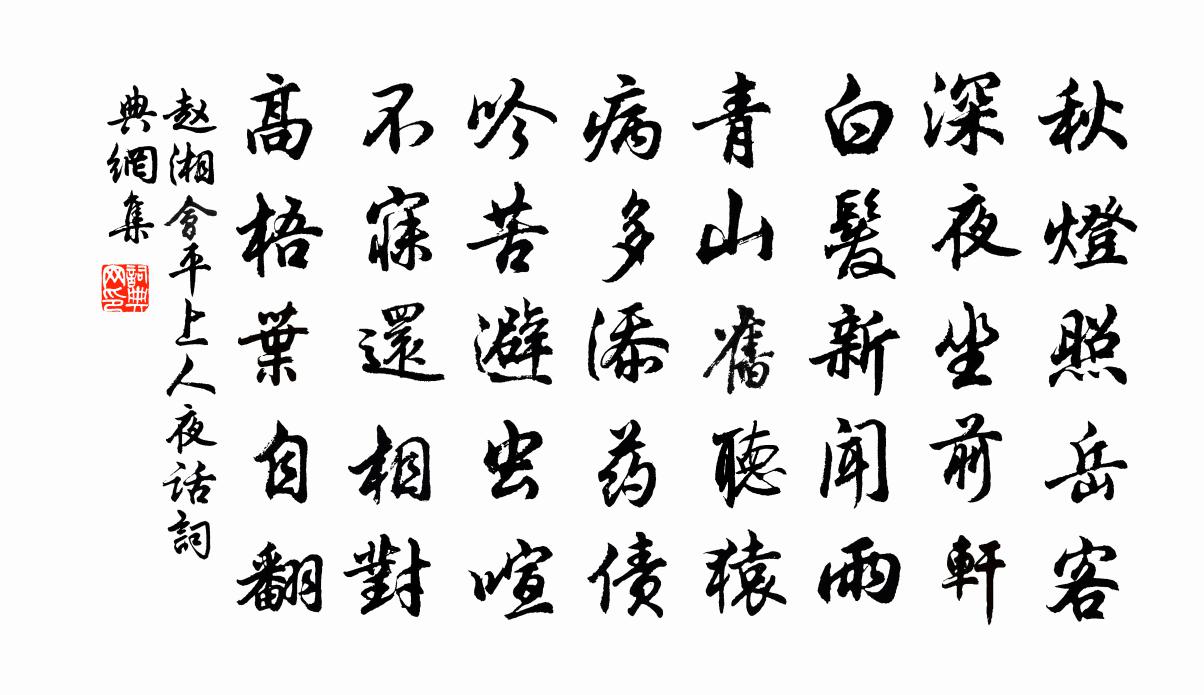 秋燈照岳客
深夜坐前軒
白髮新聞雨
青山舊聽猿
病多添药債
吟苦避虫喧
不寐還相對
高梧葉自翻
赵湘會平上人夜话詞
典網集
詞典
网印